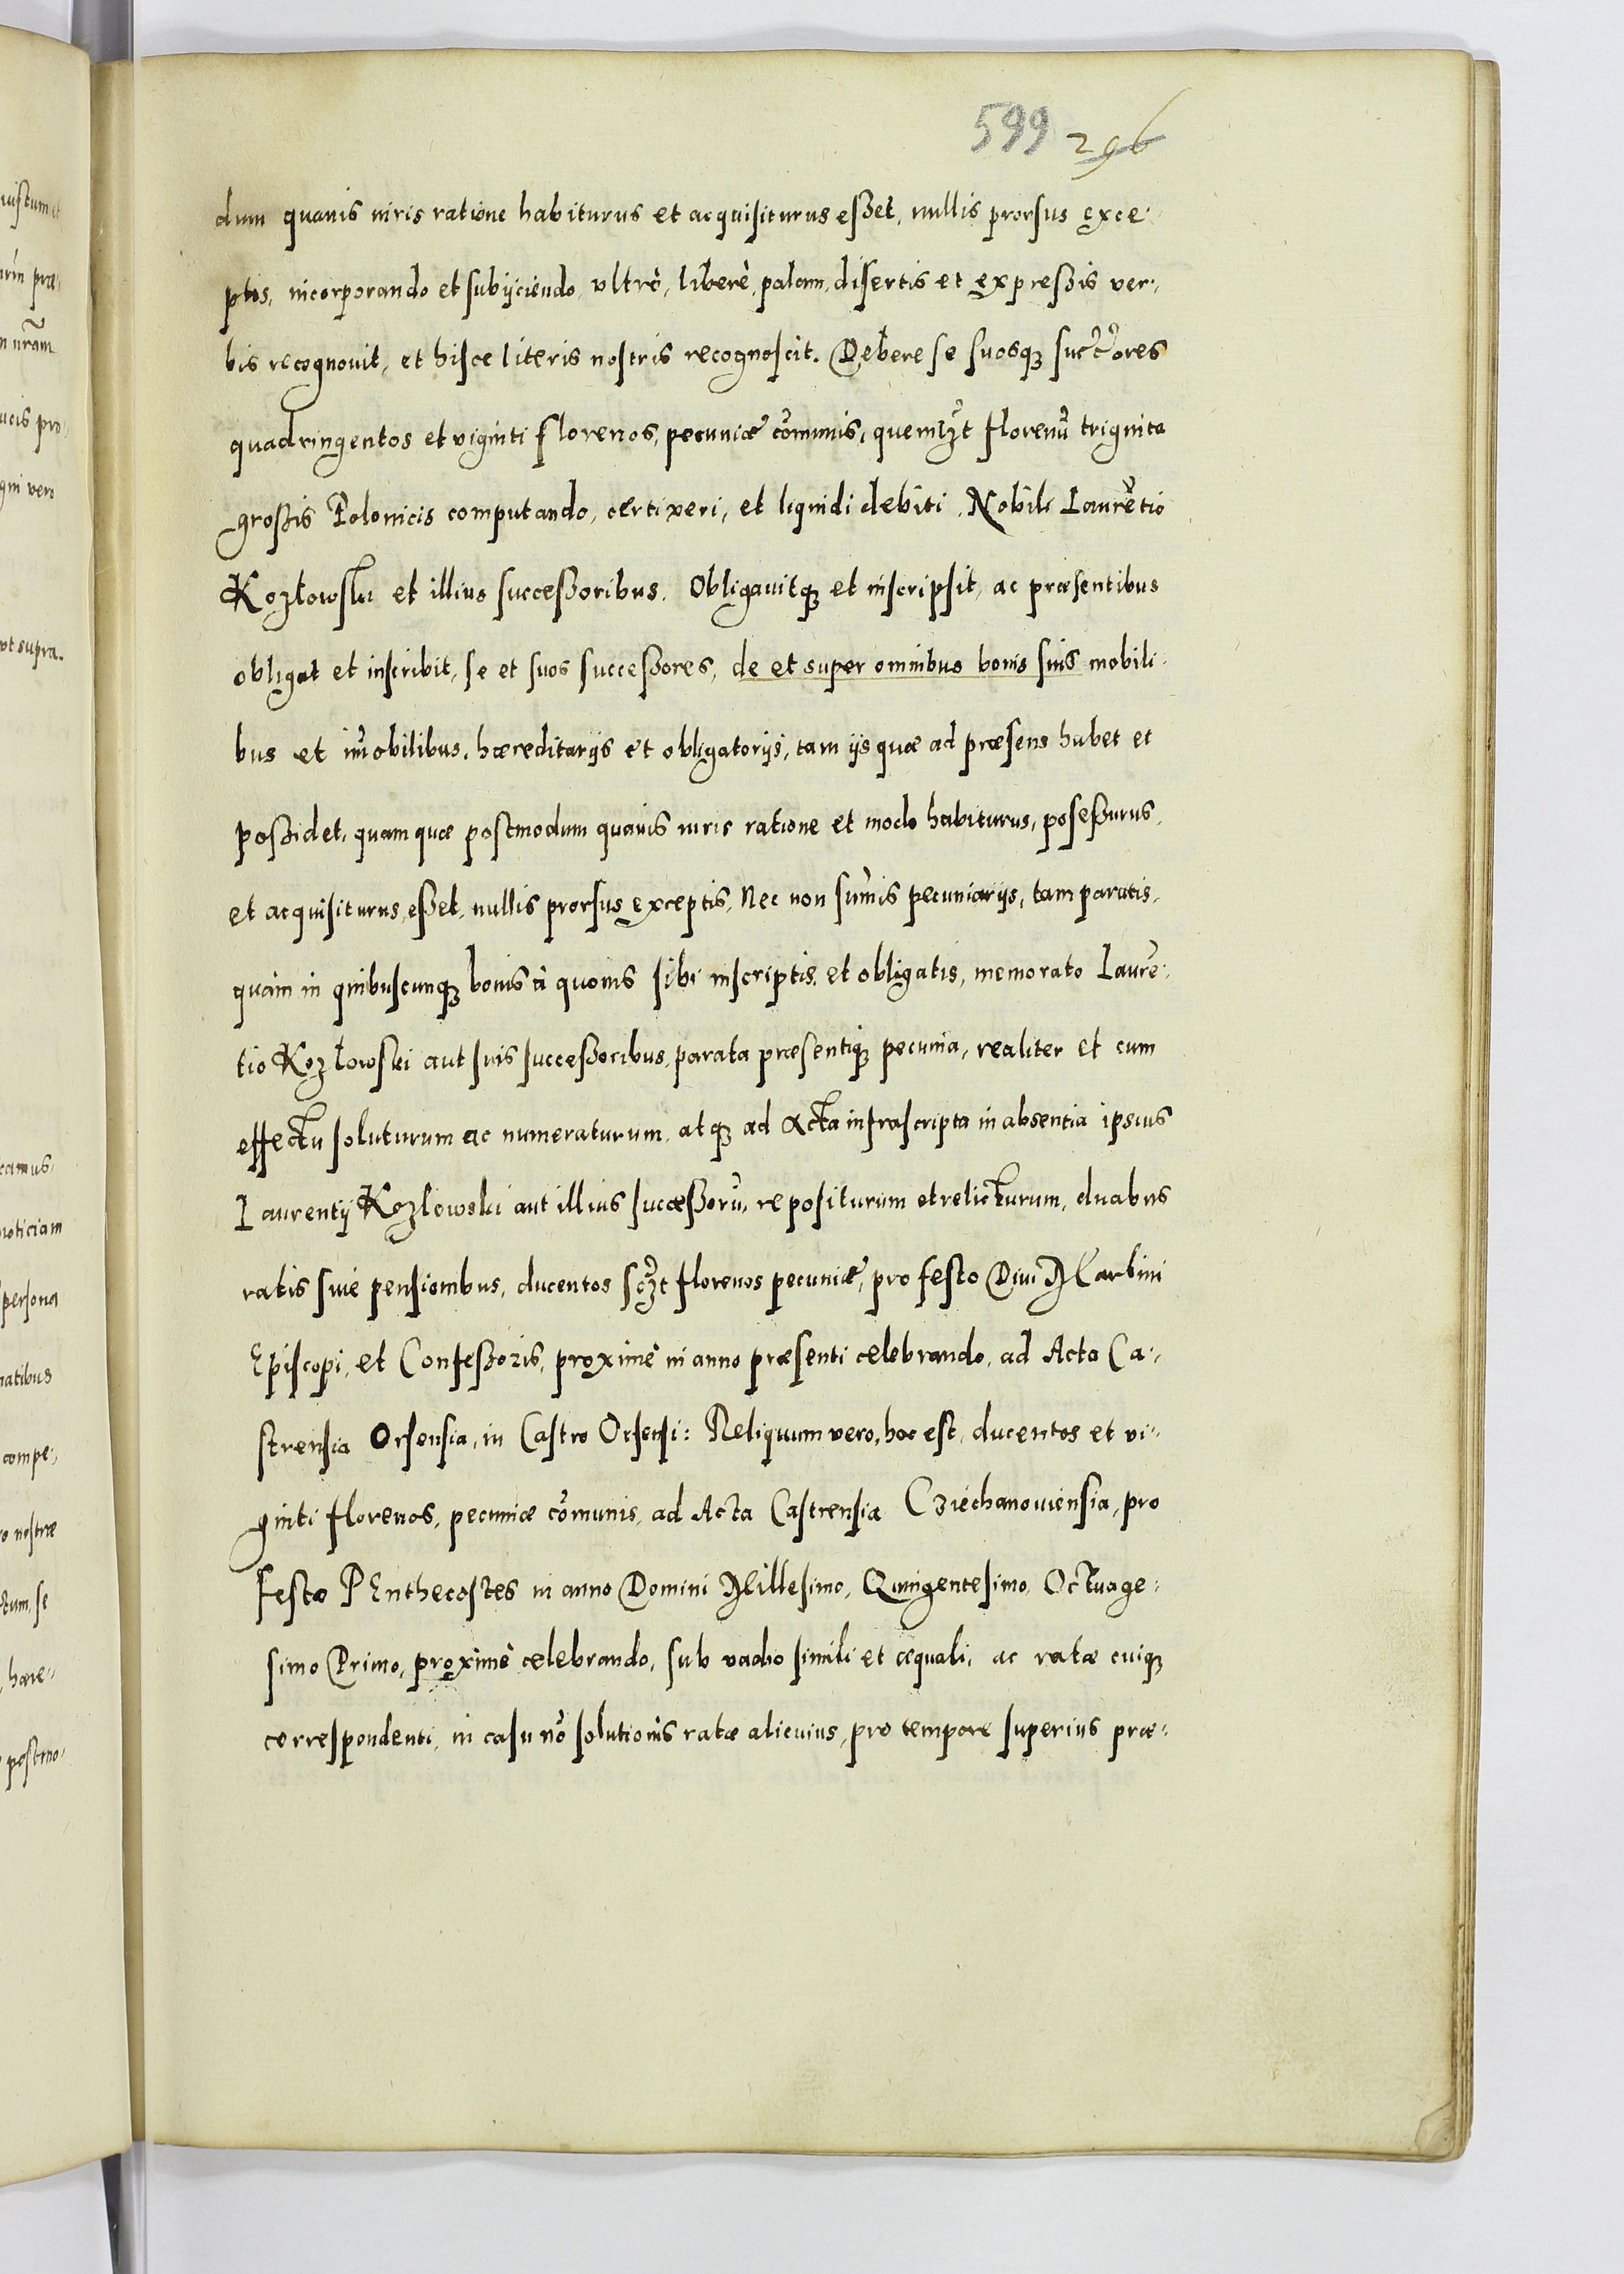 599 296
dum quavis iuris ratione habiturus et acquisiturus eßet, nullis prorsus exce-
ptis, incorporando et subijciendo, ultrò, liberè, palam, disertis et expreßis ver-
bis recognovit, et hisce literis nostris recognoscit. Debere se suosq3 succ̃ores
quadringentos et viginti florenos, pecuniæ cõmunis, quemlʒt florenũ triginta
großis Polonicis computando, certi veri, et liquidi debiti, Nobili Laurẽtio
Kozłowski et illius succeßoribus. Obligavitq3 et inscripsit, ac præsentibus
obligat et inscribit, se et suos succeßores, de et super omnibus bonis suis mobili-
bus et im̃obilibus, hæreditarijs et obligatorijs, tam ijs quæ ad præsens habet et
poßidet, quam quæ postmodum quavis iuris ratione et modo habiturus, poseßurus,
et acquisiturus, eßet, nullis prorsus exceptis, Nec non sum̃is pecuniarijs, tam paratis,
quàm in quibuscunq3 bonis à quovis sibi inscriptis, et obligatis, memorato Laurẽ-
tio Kozłowski aut suis succeßoribus, parata præsentiq3 pecunia, realiter et cum
effectu soluturum ac numeraturum, atq3 ad Acta infrascripta in absentia ipsius
Laurentij Kozłowski aut illius succeßorũ, repositurum et relicturum, duabus
ratis sive pensionibus, ducentos scʒt florenos pecuniæ, pro festo Divi Martini
Episcopi, et Confeßoris, proximè in anno præsenti celebrando, ad Acta Ca-
strensia Orsensia, in Castro Orsensi: Reliquum vero, hoc est, ducentos et vi-
ginti florenos, pecuniæ cõmunis, ad Acta Castrensia Cziechanoviensia, pro
festo PEnthecostes in anno Domini Millesimo, Quingentesimo, Octuage-
simo Primo, proximè celebrando, sub vadio simili et æquali, ac ratæ cuiq3
correspondenti, in casu nõ solutionis ratæ alicuius, pro tempore superius præ-